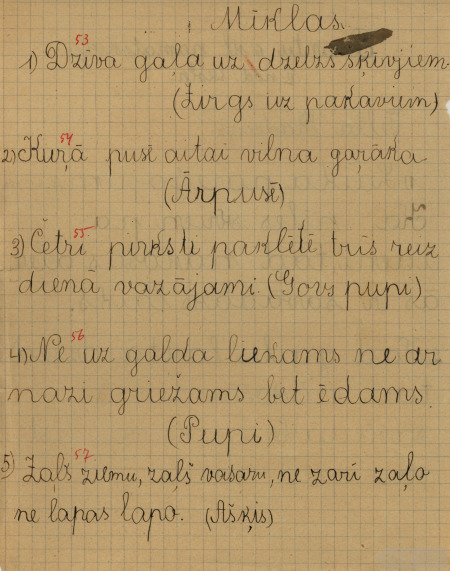 Mīklas.
53
1) Dzīva gaļa uz dzelzs šķīvjiem.
(Zirgs uz pakaviem)
54
2) Kuŗā pusē aitai vilna gaŗāka
(Ārpusē)
55
3) Četri pirksti paklētē trīs reiz
dienā vazājami. (Govs pupi)
56
4) Ne uz galda liekams ne ar
nazi griežams bet ēdams.
(Pupi)
57
5) Zaļš ziemu, zaļš vasaru, ne zarī zaļo
ne lapas lapo. (Ašķis)